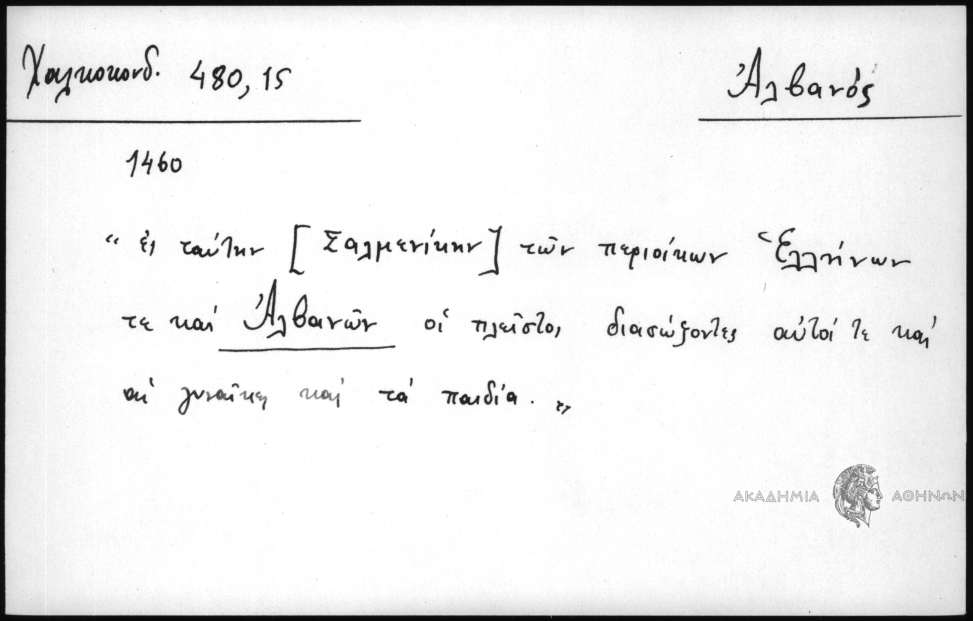 Χαλκοκονδ. 480,15
Ἀλβανός
1460
“ ἐς ταύτην [Σαλμενίκην] τῶν περιοίκων Ἑλλήνων
τε καὶ Ἀλβανῶν οἱ πλεῖστοι διασώζοντες αὐτοί τε καὶ
αἱ γυναῖκες καὶ τὰ παιδία. „
ΑΚΑΔΗΜΙΑ ΑΘΗΝΩΝ